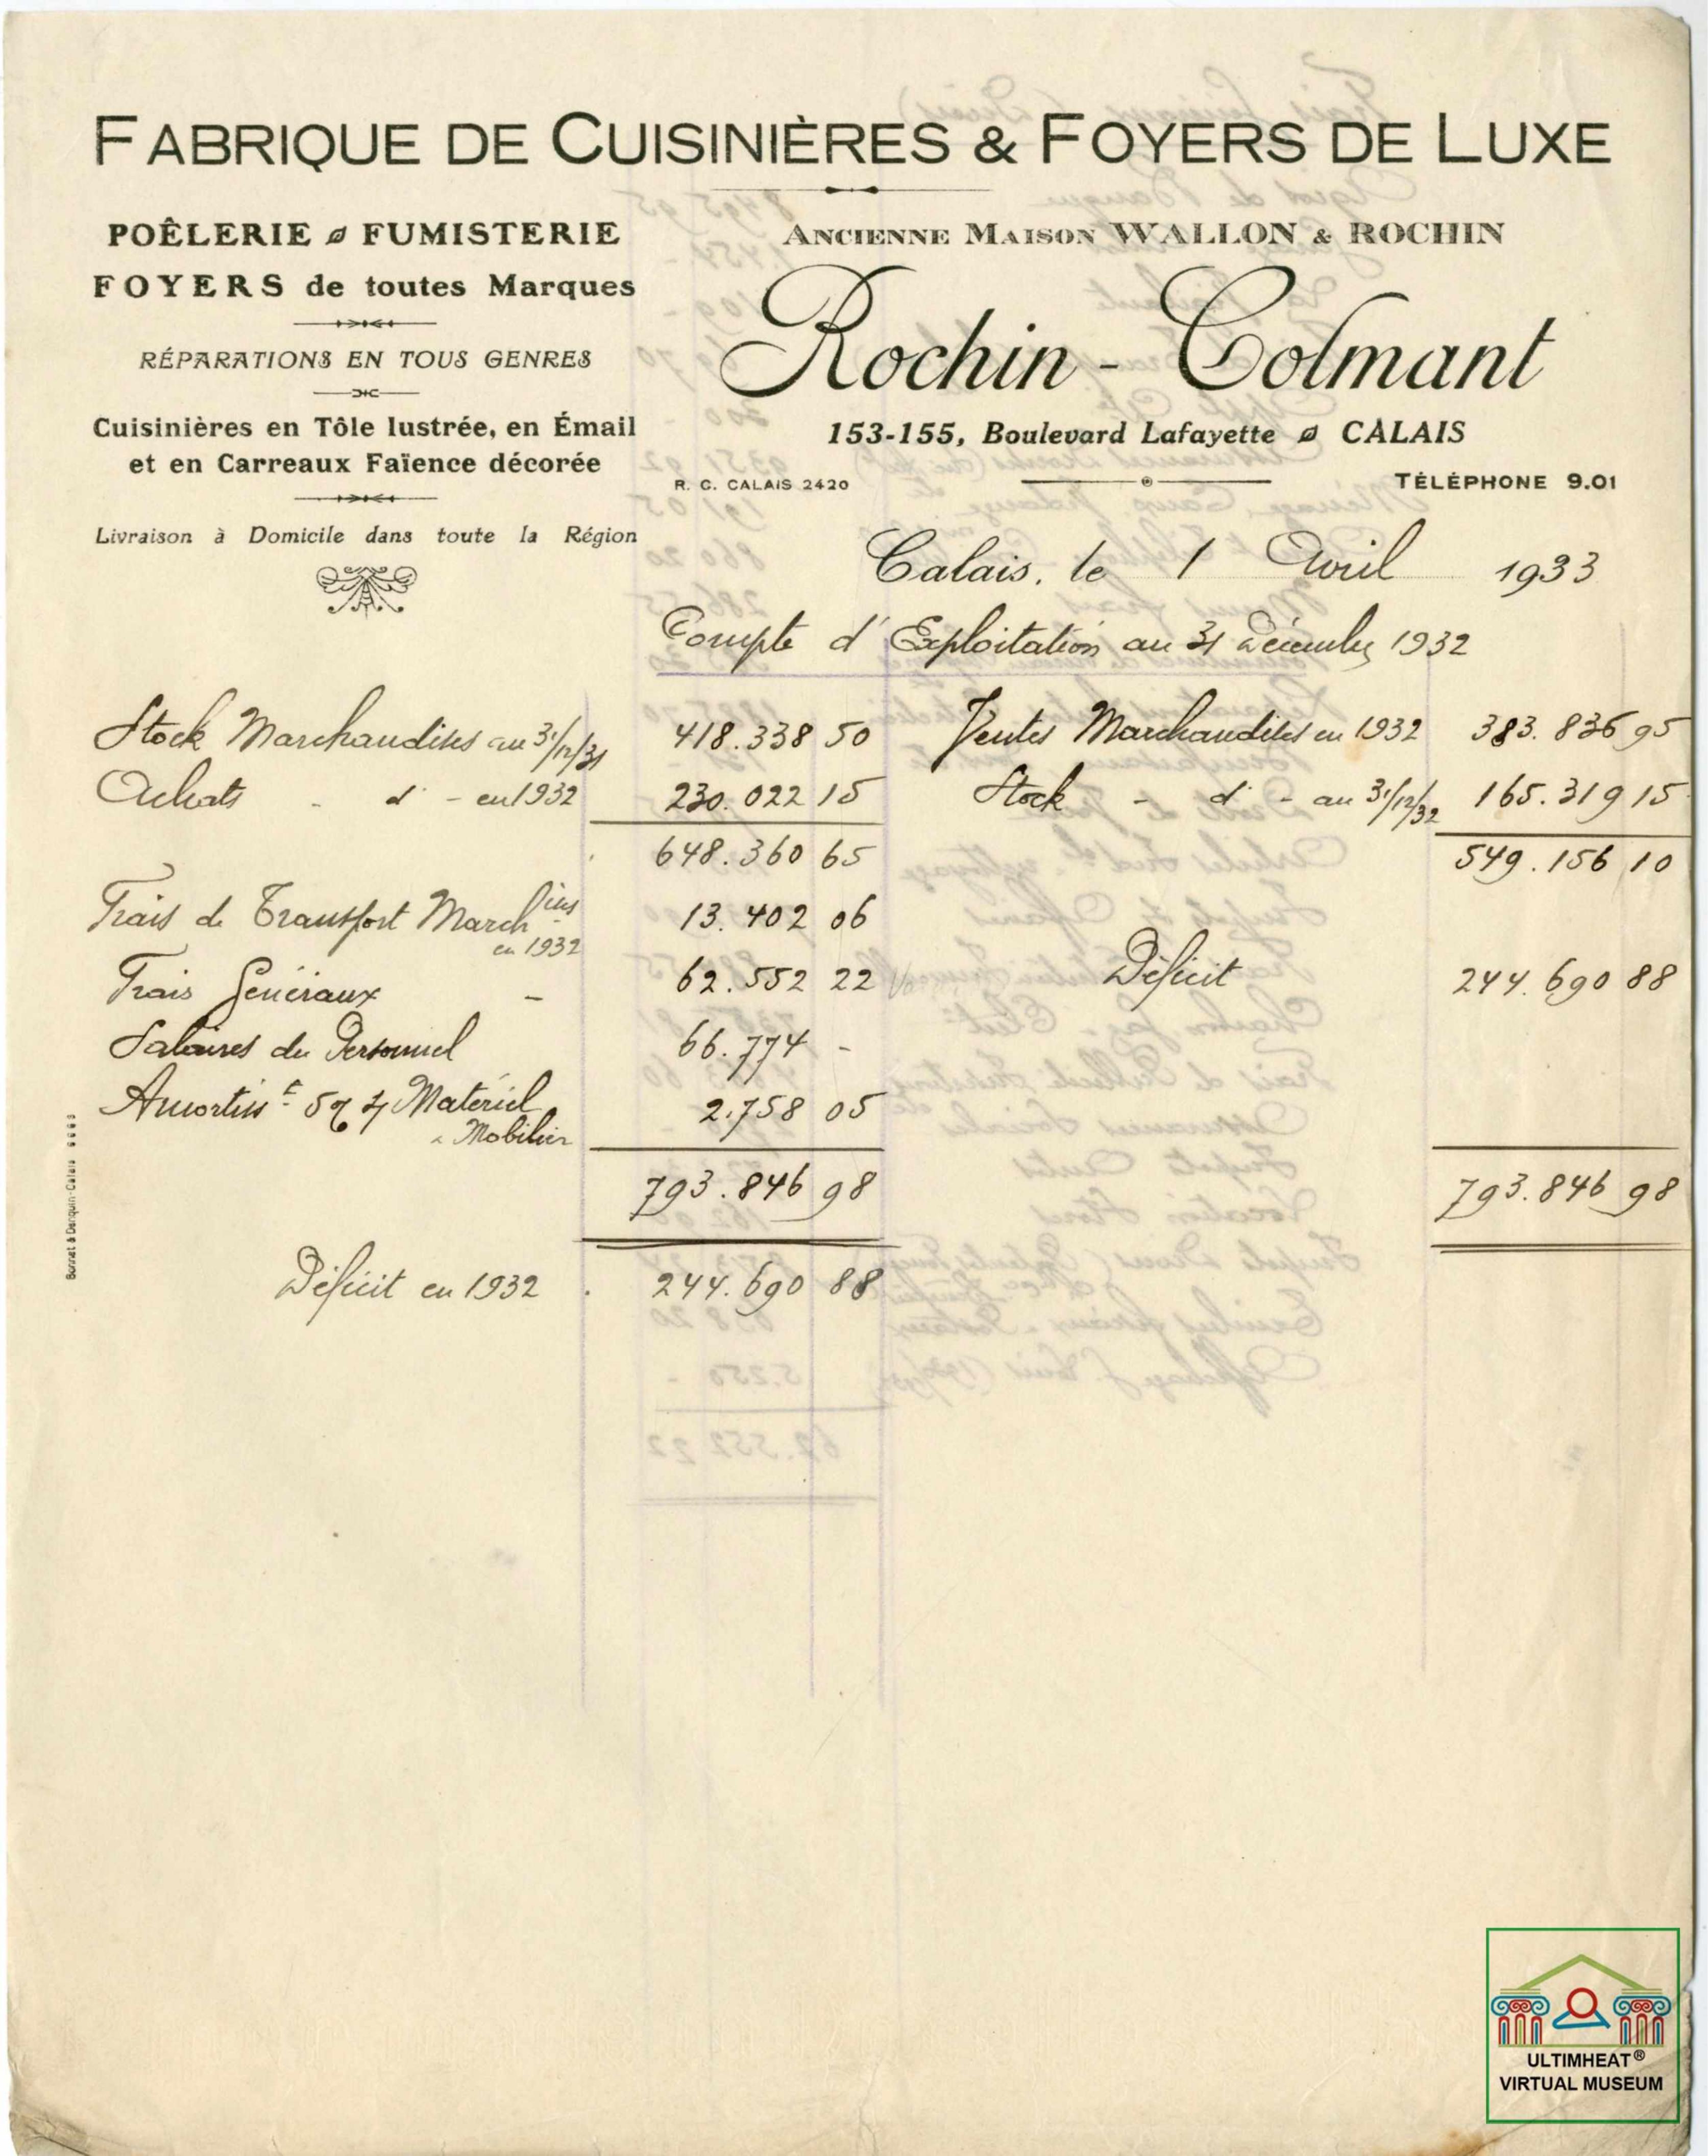 FABRIQUE DE CUISINIÈRES & FOYERS DE LUXE
POÊLERIE FUMISTERIE
FOYERS de toutes Marques
RÉPARATIONS EN TOUS GENRES
Cuisinières en Tôle lustrée, en Émail
et en Carreaux Faïence décorée
Livraison à Domicile dans toute la Région
ANCIENNE MAISON WALLON & ROCHIN
Rochin - Colmant
153-155, Boulevard Lafayette CALAIS
R. C. CALAIS 2420
TÉLÉPHONE 9.01
Calais, le 1 Avril 1933
Compte d'Exploitation au 31 Décembre 1932
Stock Marchandises au 31/12/31 418.338 50 Ventes Marchandises en 1932 383.836 95
Achats - d° - en 1932 230.022 15 Stock - d° - au 31/12/32 165.319 15
648.360 65 549.156 10
Frais de Transport March 13.402 06
en 1932
Frais Généraux - 62.552 22 Déficit 244.690 88
Salaires du Personnel 66.774 -
Amortiss t 5% Matériel 2.758 05
Mobilier
793.846 98 793.846 98
Déficit en 1932 . 244.690 88
Bonnet & Danquin-Calais
ULTIMHEAT®
VIRTUAL MUSEUM